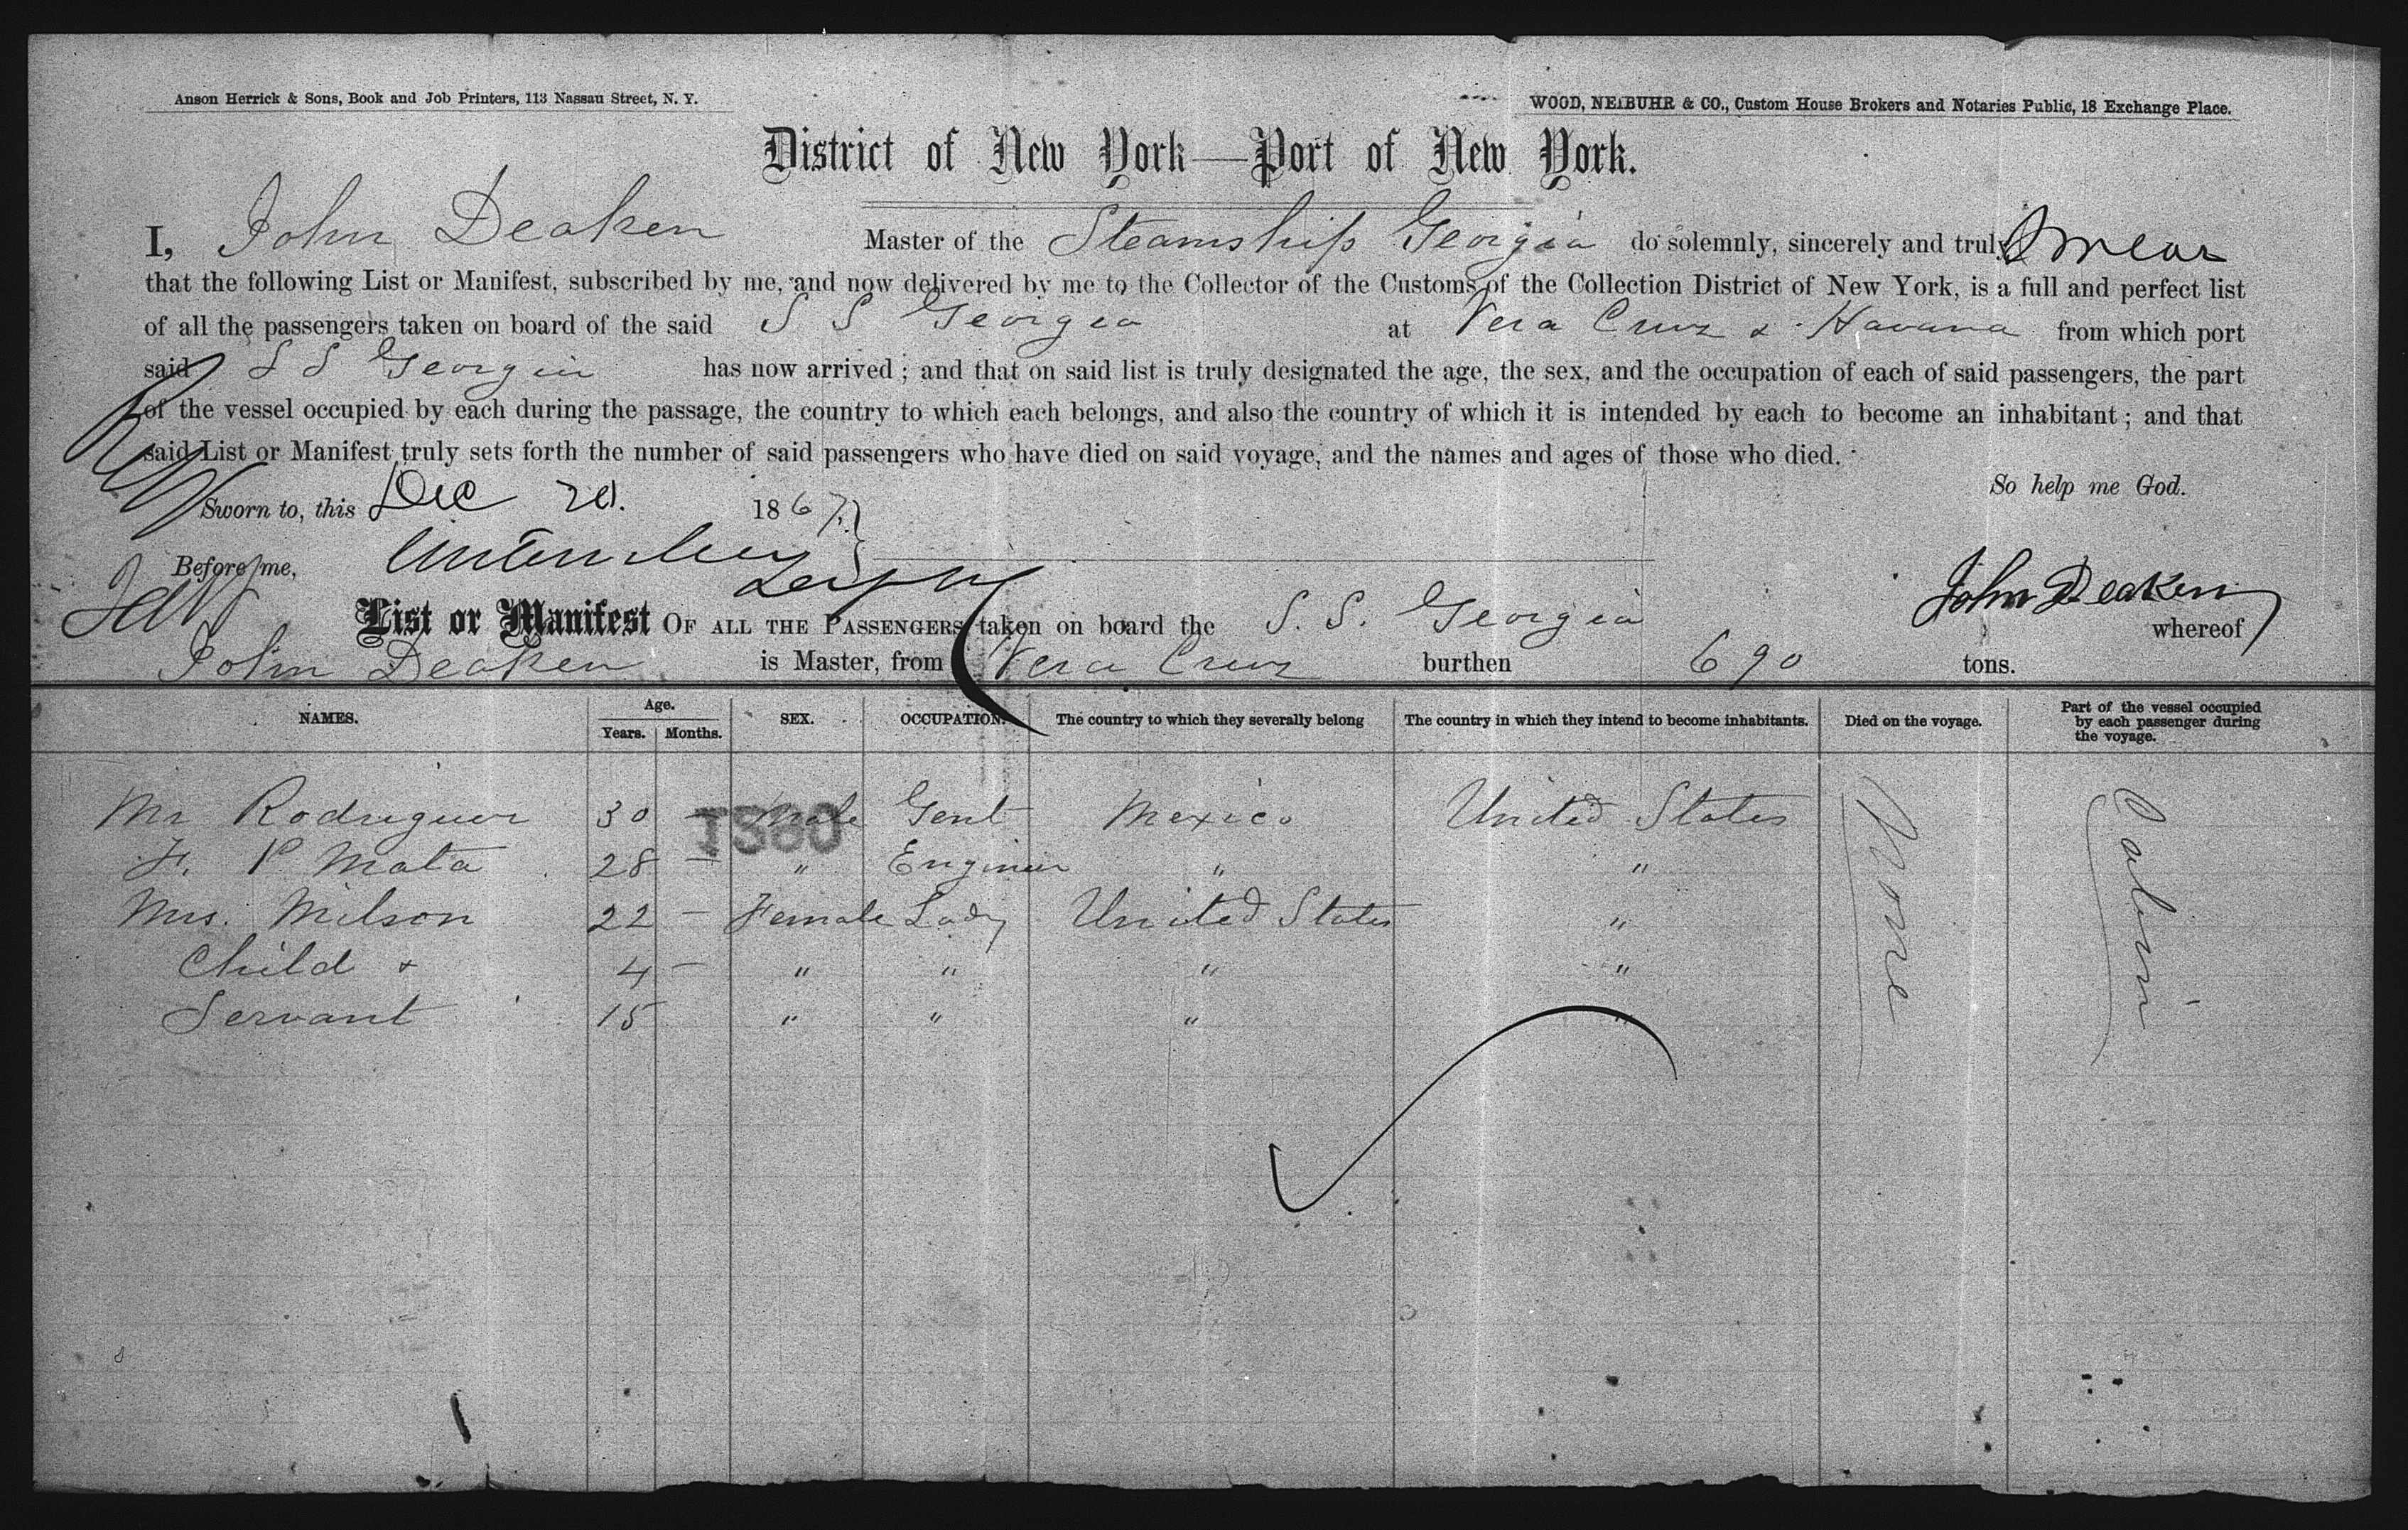 Anson Herrick & Sons, Book and Job Printers, 113 Nassau Street, N. Y.
WOOD, NEIBUHR & CO., Custom House Brokers and Notaries Public, 18 Exchange Place.
District of New York—Port of New York.
I, John Deaken Master of the Steamship Georgia do solemnly, sincerely and truly Swear
that the following List or Manifest, subscribed by me, and now delivered by me to the Collector of the Customs of the Collection District of New York, is a full and perfect list
of all the passengers taken on board of the said S S Georgia at Vera Cruz & Havana from which port
said S S Georgia has now arrived; and that on said list is truly designated the age, the sex, and the occupation of each of said passengers, the part
of the vessel occupied by each during the passage, the country to which each belongs, and also the country of which it is intended by each to become an inhabitant; and that
said List or Manifest truly sets forth the number of said passengers who have died on said voyage, and the names and ages of those who died.
So help me God.
Sworn to, this Dec 20. 1867.
Before me,
John Deaken
List or Manifest OF ALL THE PASSENGERS taken on board the S. S. Georgia whereof
John Deaken is Master, from Vera Cruz burthen 690 tons.
NAMES. Age. Years. Months. SEX. OCCUPATION. The country to which they severally belong The country in which they intend to become inhabitants. Died on the voyage. Part of the vessel occupied by each passenger during the voyage.
1380
Mr Rodriguez 30 — Male Gent Mexico United States
F. P. Mata 28 — " Engineer " "
Mrs. Milson 22 — Female Lady United States "
Child & 4 — " " " "
Servant 15 " " " "
None
Cabin